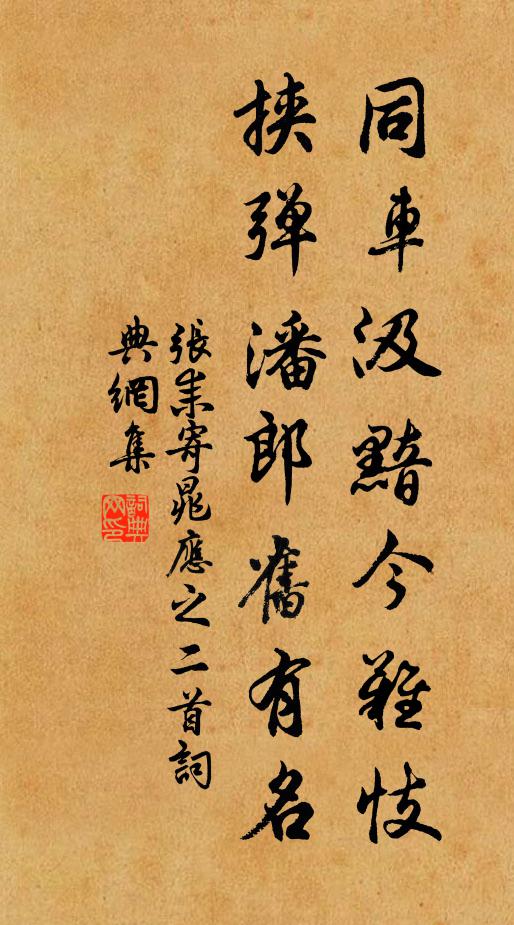 同車汲黯今難忮
挾弹潘郎舊有名
張耒寄晁應之二首詞
典網集
詞典網印